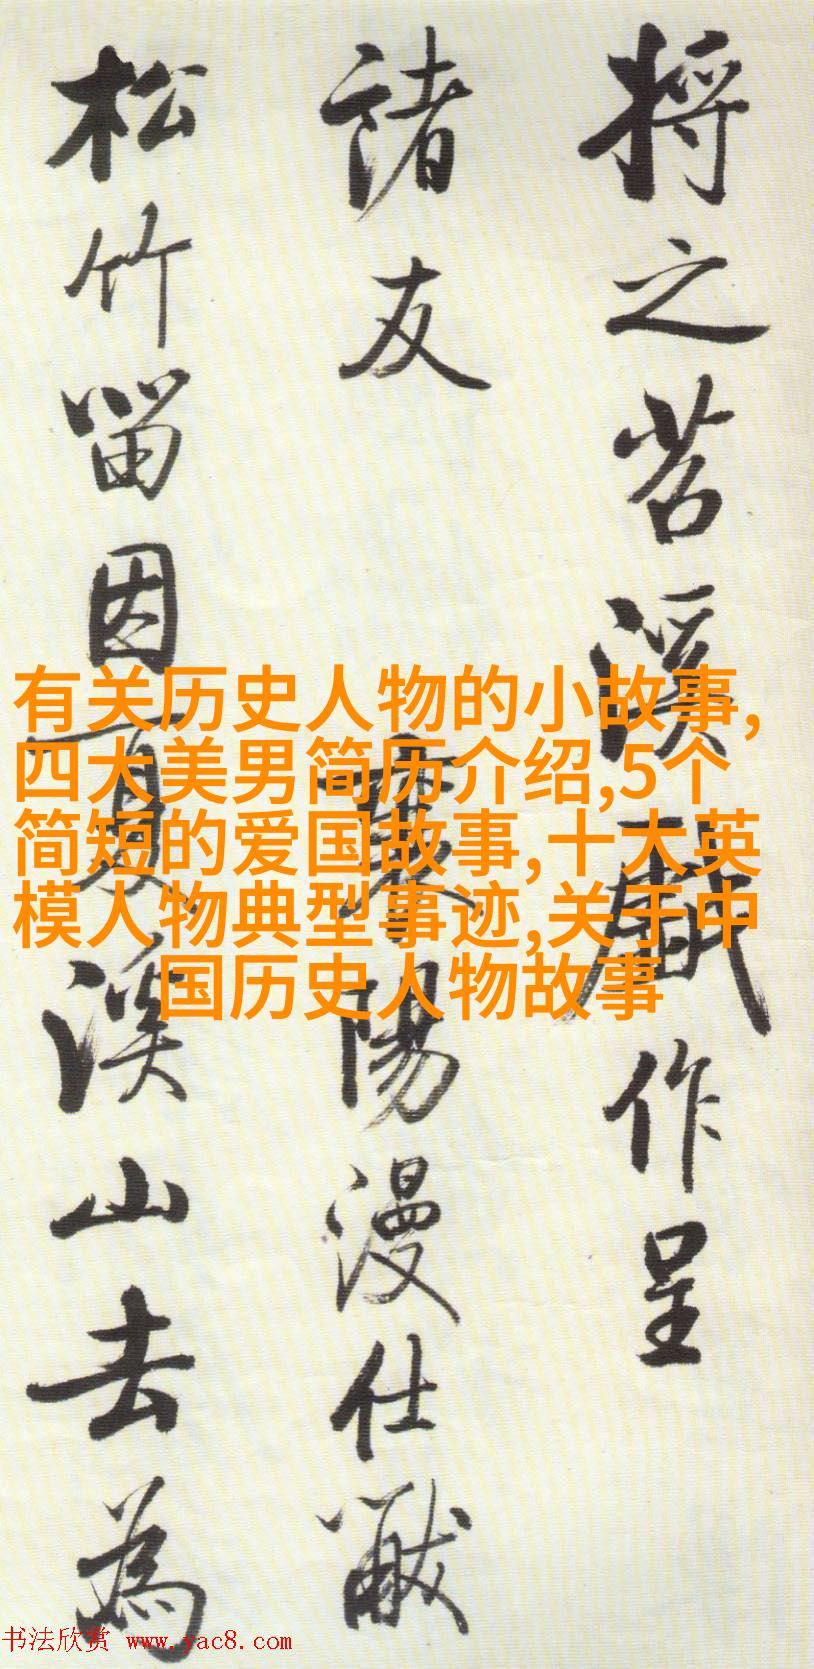 将之苕溪戲作呈
諸友
襄陽漫仕黻
松竹留因夏溪山去為
有关历史人物的小故事,
四大美男简历介绍,5个
简短的爱国故事,十大英
模人物典型事迹,关于中
国历史人物故事
书法欣赏 www.yac8.com